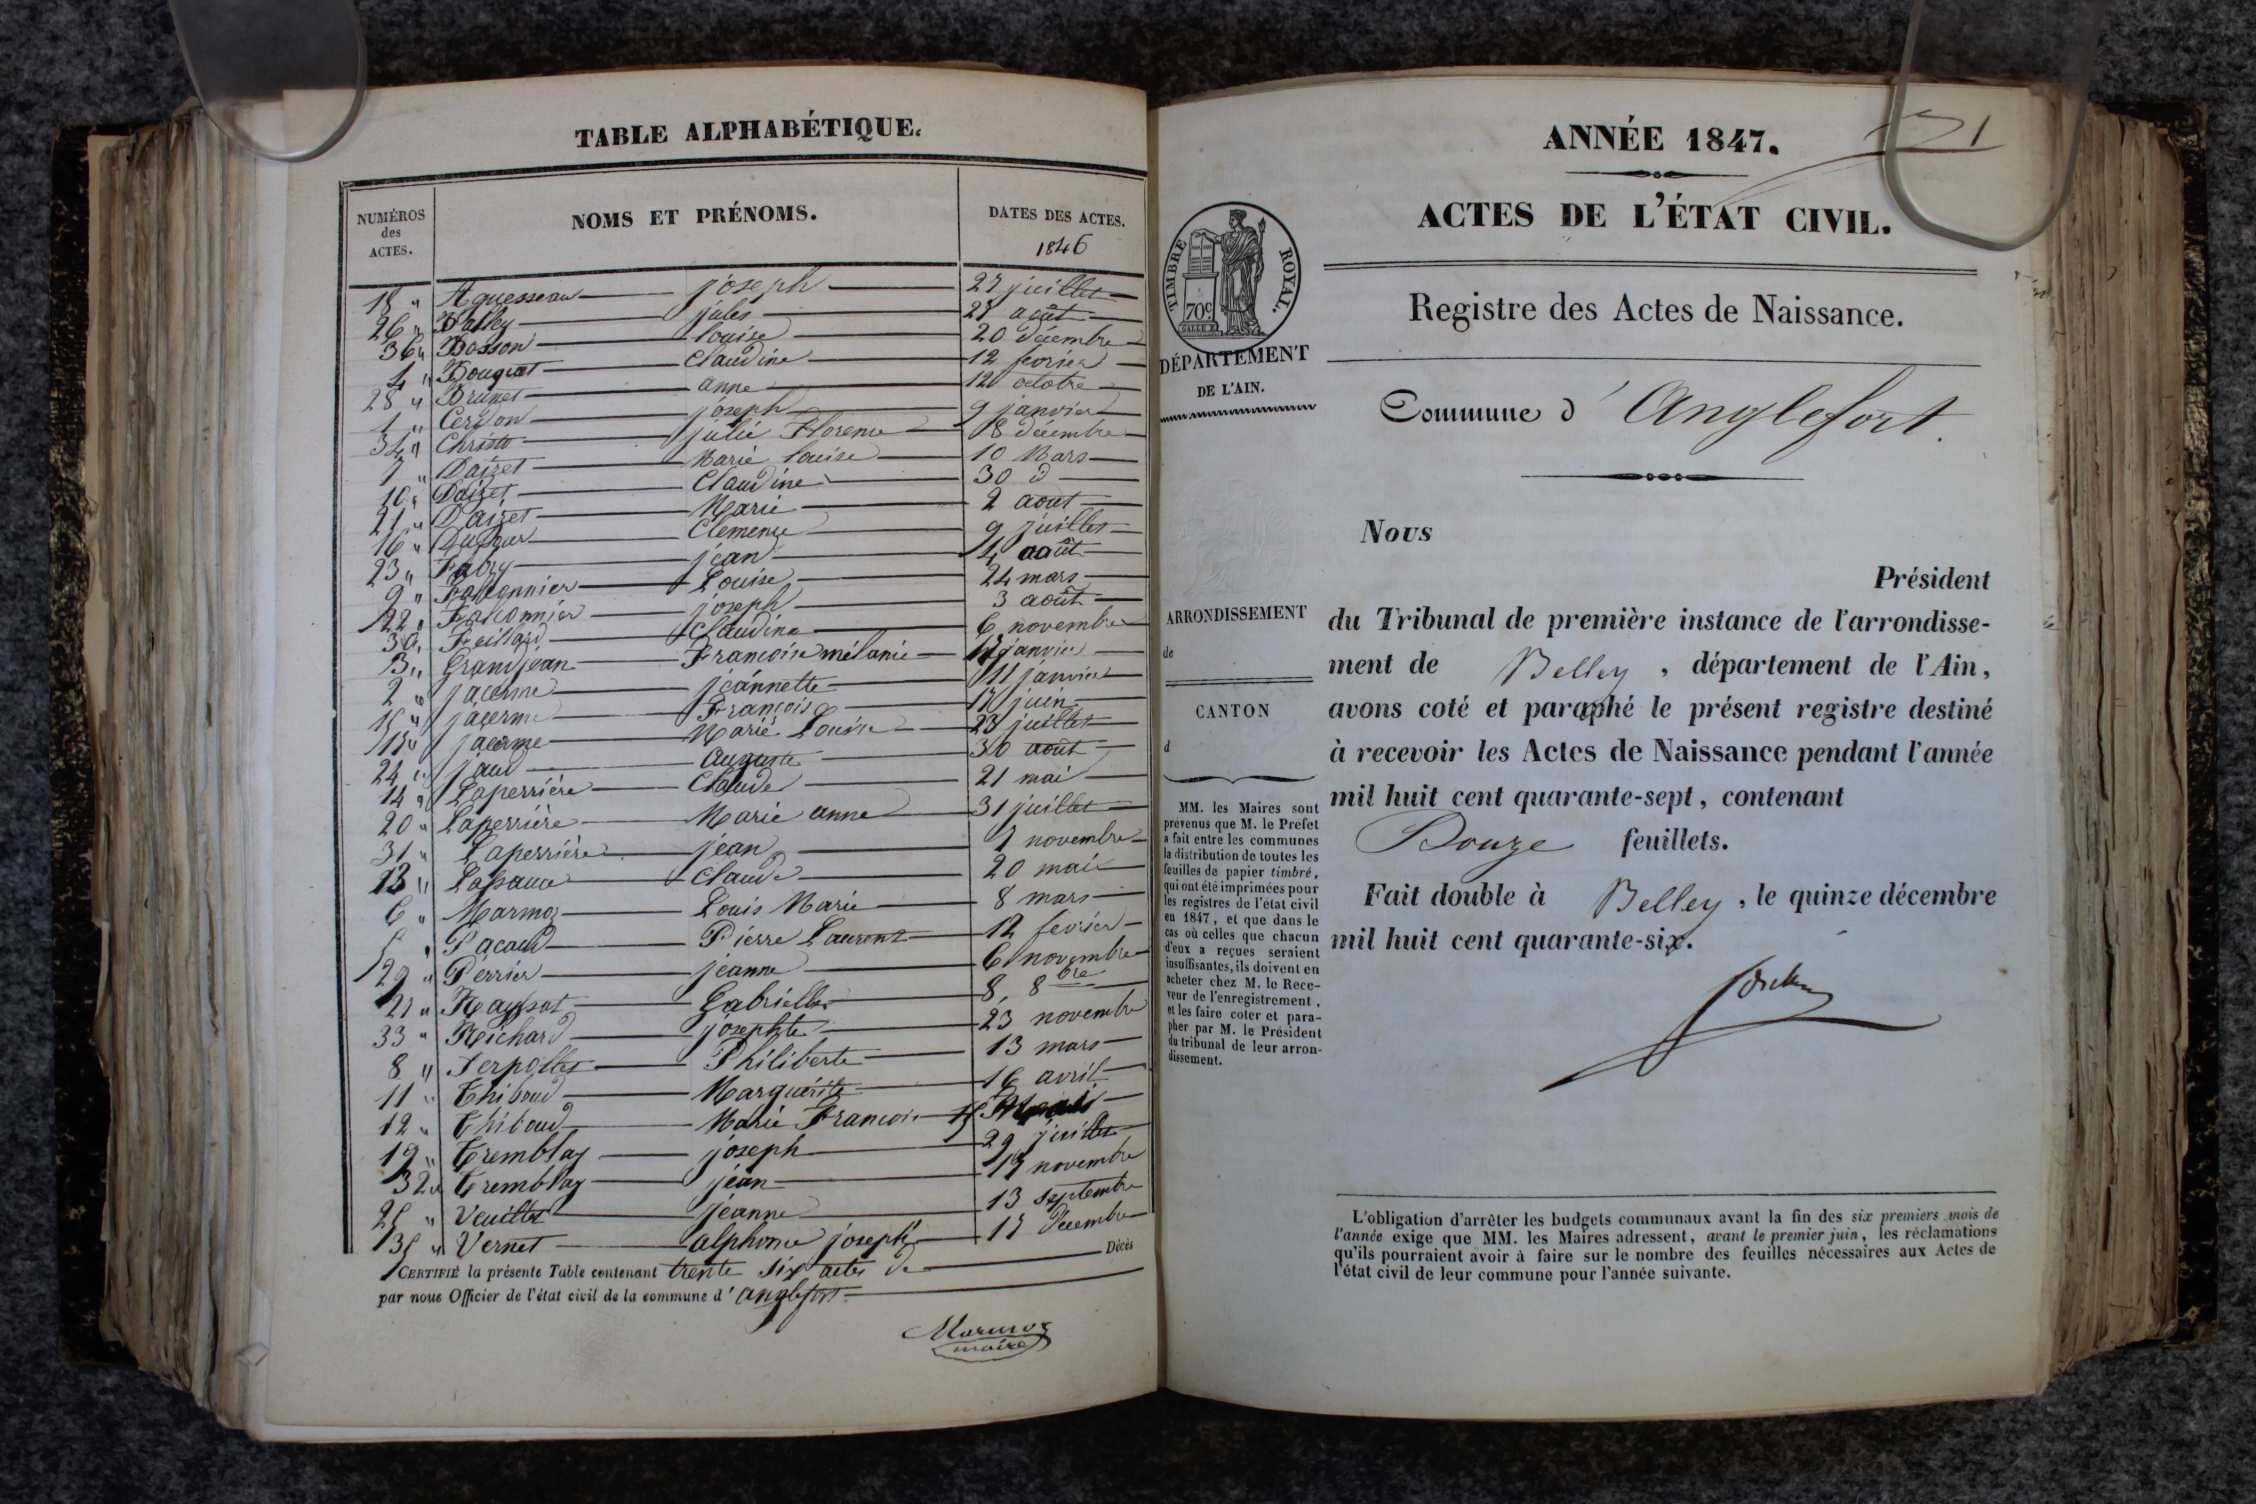 TABLE ALPHABÉTIQUE.
NUMÉROS des ACTES.
NOMS ET PRÉNOMS.
DATES DES ACTES.
1846
18 " Aguesseau joseph 27 juillet
26 " jules 28 août
36 " Bosson louise 20 décembre
4 " Bouquet Claudine 12 fevrier
28 " Brunet anne 12 octobre
1 " Cerdon joseph 9 janvier
34 " Christo julie Florence 8 décembre
7 " Daizet Marie louise 10 Mars
10 " Daizet Claudine 30 d
21 " Daizet Marie 2 aout
16 " Clemence 9 juillet
23 " Fabry jean 4 août
9 " Falconnier Louise 24 mars
22 " Falconnier joseph 3 août
30 " Feillard Claudine 6 novembre
3 " Grandjean Francoise mélanie janvier
2 " jacerme jeannette 11 janvier
15 " jacerme François 17 juin
" jacerme Marie Louise 23 juillet
24 " jaud Auguste 30 août
14 " Laperrière Claude 21 mai
20 " Laperrière Marie anne 31 juillet
31 " Laperrière jean 7 novembre
13 " Claude 20 mai
6 " Marmoz Louis Marie 8 mars
5 " Pacaud Pierre Laurent 12 fevrier
29 " Perrier jeanne 6 novembre
27 " Gabrielle 8 8bre
33 " Richard josephte 23 novembre
8 " Serpollet Philiberte 13 mars
11 " Thibaud Marguerite 16 avril
12 " Thibaud Marie Francois
19 " Tremblay joseph 29 juillet
32 " Tremblay jean 19 novembre
25 " Veuillet jeanne 13 septembre
35 " Vernet alphonse joseph 17 décembre
CERTIFIÉ la présente Table contenant trente six actes de Décès
par nous Officier de l'état civil de la commune d' anglefort
Marmoz
maire
1
ANNÉE 1847.
ACTES DE L'ÉTAT CIVIL.
TIMBRE ROYAL.
70c
Registre des Actes de Naissance.
DÉPARTEMENT
DE L'AIN.
Commune d' Anglefort.
Nous
Président
ARRONDISSEMENT
de
CANTON
d
du Tribunal de première instance de l'arrondisse-
ment de Belley, département de l'Ain,
avons coté et paraphé le présent registre destiné
à recevoir les Actes de Naissance pendant l'année
mil huit cent quarante-sept, contenant
Douze feuillets.
Fait double à Belley, le quinze décembre
mil huit cent quarante-six.
MM. les Maires sont
prévenus que M. le Préfet
a fait entre les communes
la distribution de toutes les
feuilles de papier timbré,
qui ont été imprimées pour
les registres de l'état civil
en 1847, et que dans le
cas où celles que chacun
d'eux a reçues seraient
insuffisantes, ils doivent en
acheter chez M. le Rece-
veur de l'enregistrement,
et les faire coter et para-
pher par M. le Président
du tribunal de leur arron-
dissement.
L'obligation d'arrêter les budgets communaux avant la fin des six premiers mois de
l'année exige que MM. les Maires adressent, avant le premier juin, les réclamations
qu'ils pourraient avoir à faire sur le nombre des feuilles nécessaires aux Actes de
l'état civil de leur commune pour l'année suivante.